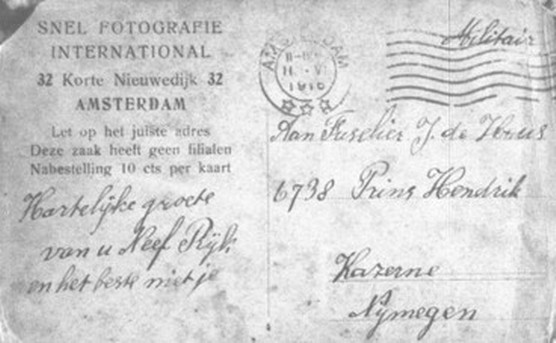 SNEL FOTOGRAFIE
INTERNATIONAL
32 Korte Nieuwedijk 32
AMSTERDAM
Let op het juiste adres
Deze zaak heeft geen filialen
Nabestelling 10 cts per kaart
Hartelijke groete
van u Neef Rijk
en het beste met je
AMSTERDAM
1916
Militair
Aan Fuselier J. de
6738 Prins Hendrik
Kazerne
Nymegen